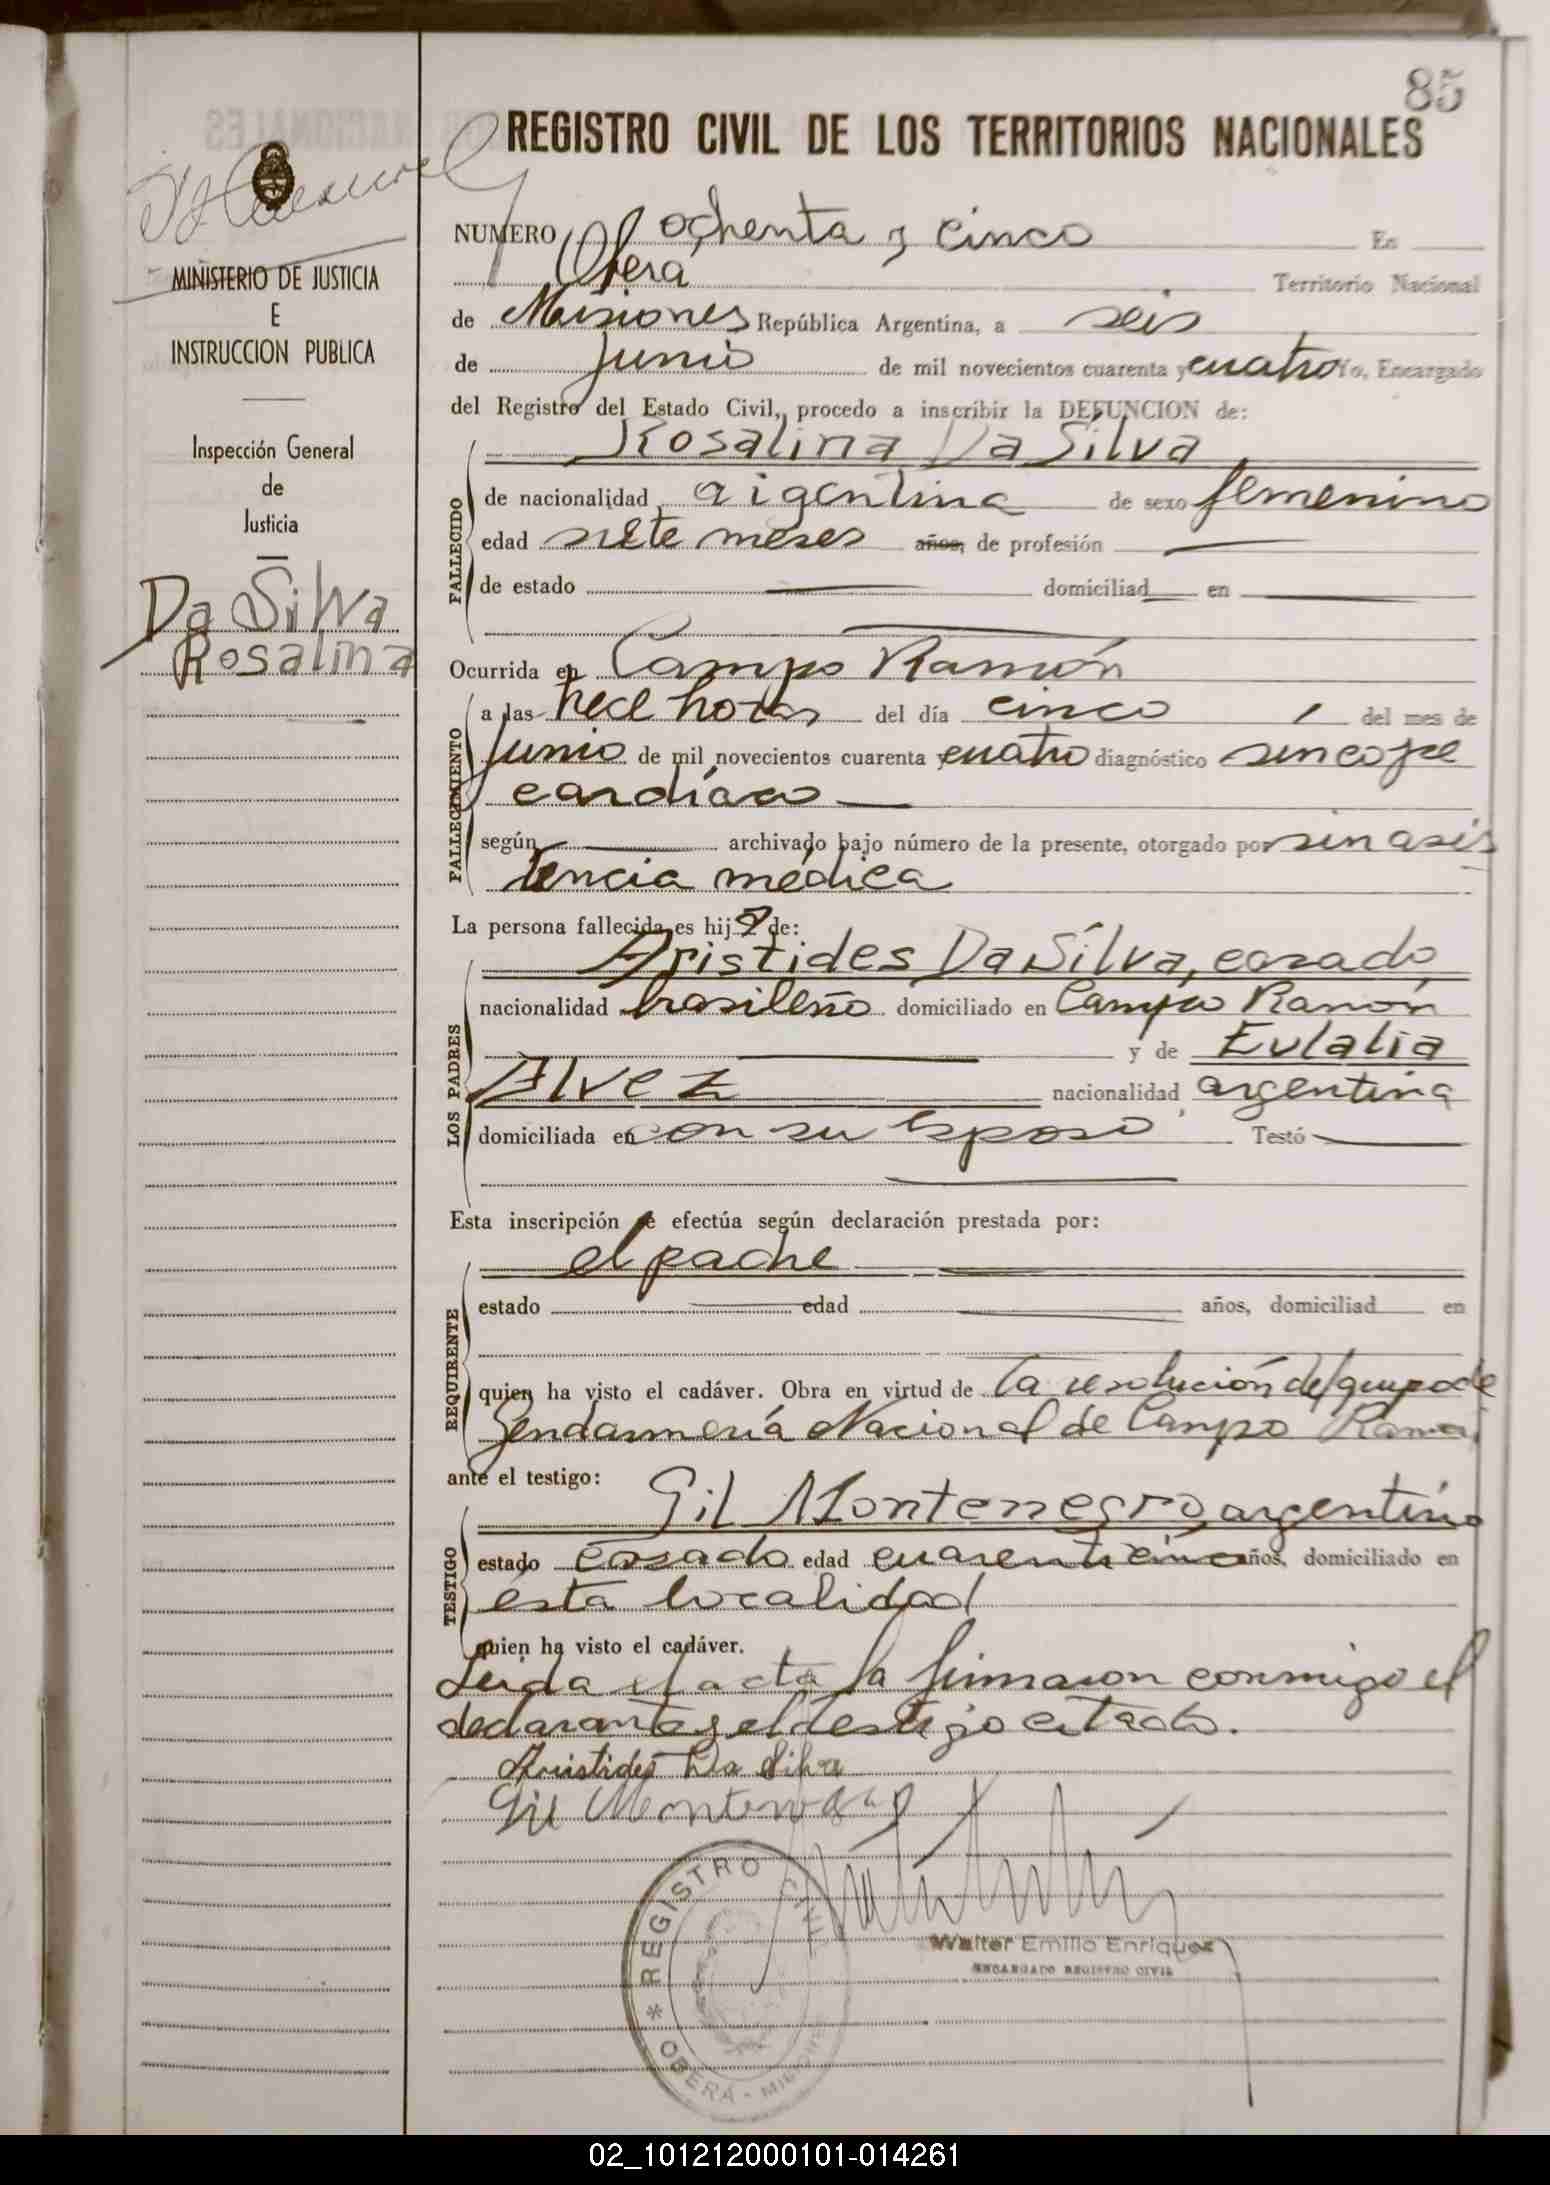 85
REGISTRO CIVIL DE LOS TERRITORIOS NACIONALES
MINISTERIO DE JUSTICIA
E
INSTRUCCION PUBLICA
Inspección General
de
Justicia
Da Silva
Rosalina
NUMERO ochenta y cinco En
Oberá Territorio Nacional
de Misiones República Argentina, a seis
de Junio de mil novecientos cuarenta y cuatro Yo, Encargado
del Registro del Estado Civil, procedo a inscribir la DEFUNCION de:
Rosalina Da Silva
FALLECIDO
de nacionalidad argentina de sexo femenino
edad siete meses años, de profesión
de estado domiciliad en
Ocurrida en Campo Ramón
FALLECIMIENTO
a las trece horas del día cinco del mes de
Junio de mil novecientos cuarenta y cuatro diagnóstico sincope
cardíaco
según archivado bajo número de la presente, otorgado por sin asis
tencia médica
La persona fallecida es hija de:
LOS PADRES
Aristides Da Silva, casado
nacionalidad brasileño domiciliado en Campo Ramón
y de Eulalia
Alvez nacionalidad argentina
domiciliada en con su esposo Testó
Esta inscripción se efectúa según declaración prestada por:
REQUIRENTE
el padre
estado edad años, domiciliad en
quien ha visto el cadáver. Obra en virtud de la resolución del grupo de
Gendarmería Nacional de Campo Ramón
ante el testigo:
TESTIGO
Gil Montenegro, argentino
estado casado edad cuarenticinco años, domiciliado en
esta localidad
quien ha visto el cadáver.
Leida el acta la firmaron conmigo el
declarante y el testigo citado.
Aristides Da Silva
Gil Montenegro
REGISTRO CIVIL
* OBERÁ - MISIONES
Walter Emilio Enriquez
ENCARGADO REGISTRO CIVIL
02_101212000101-014261